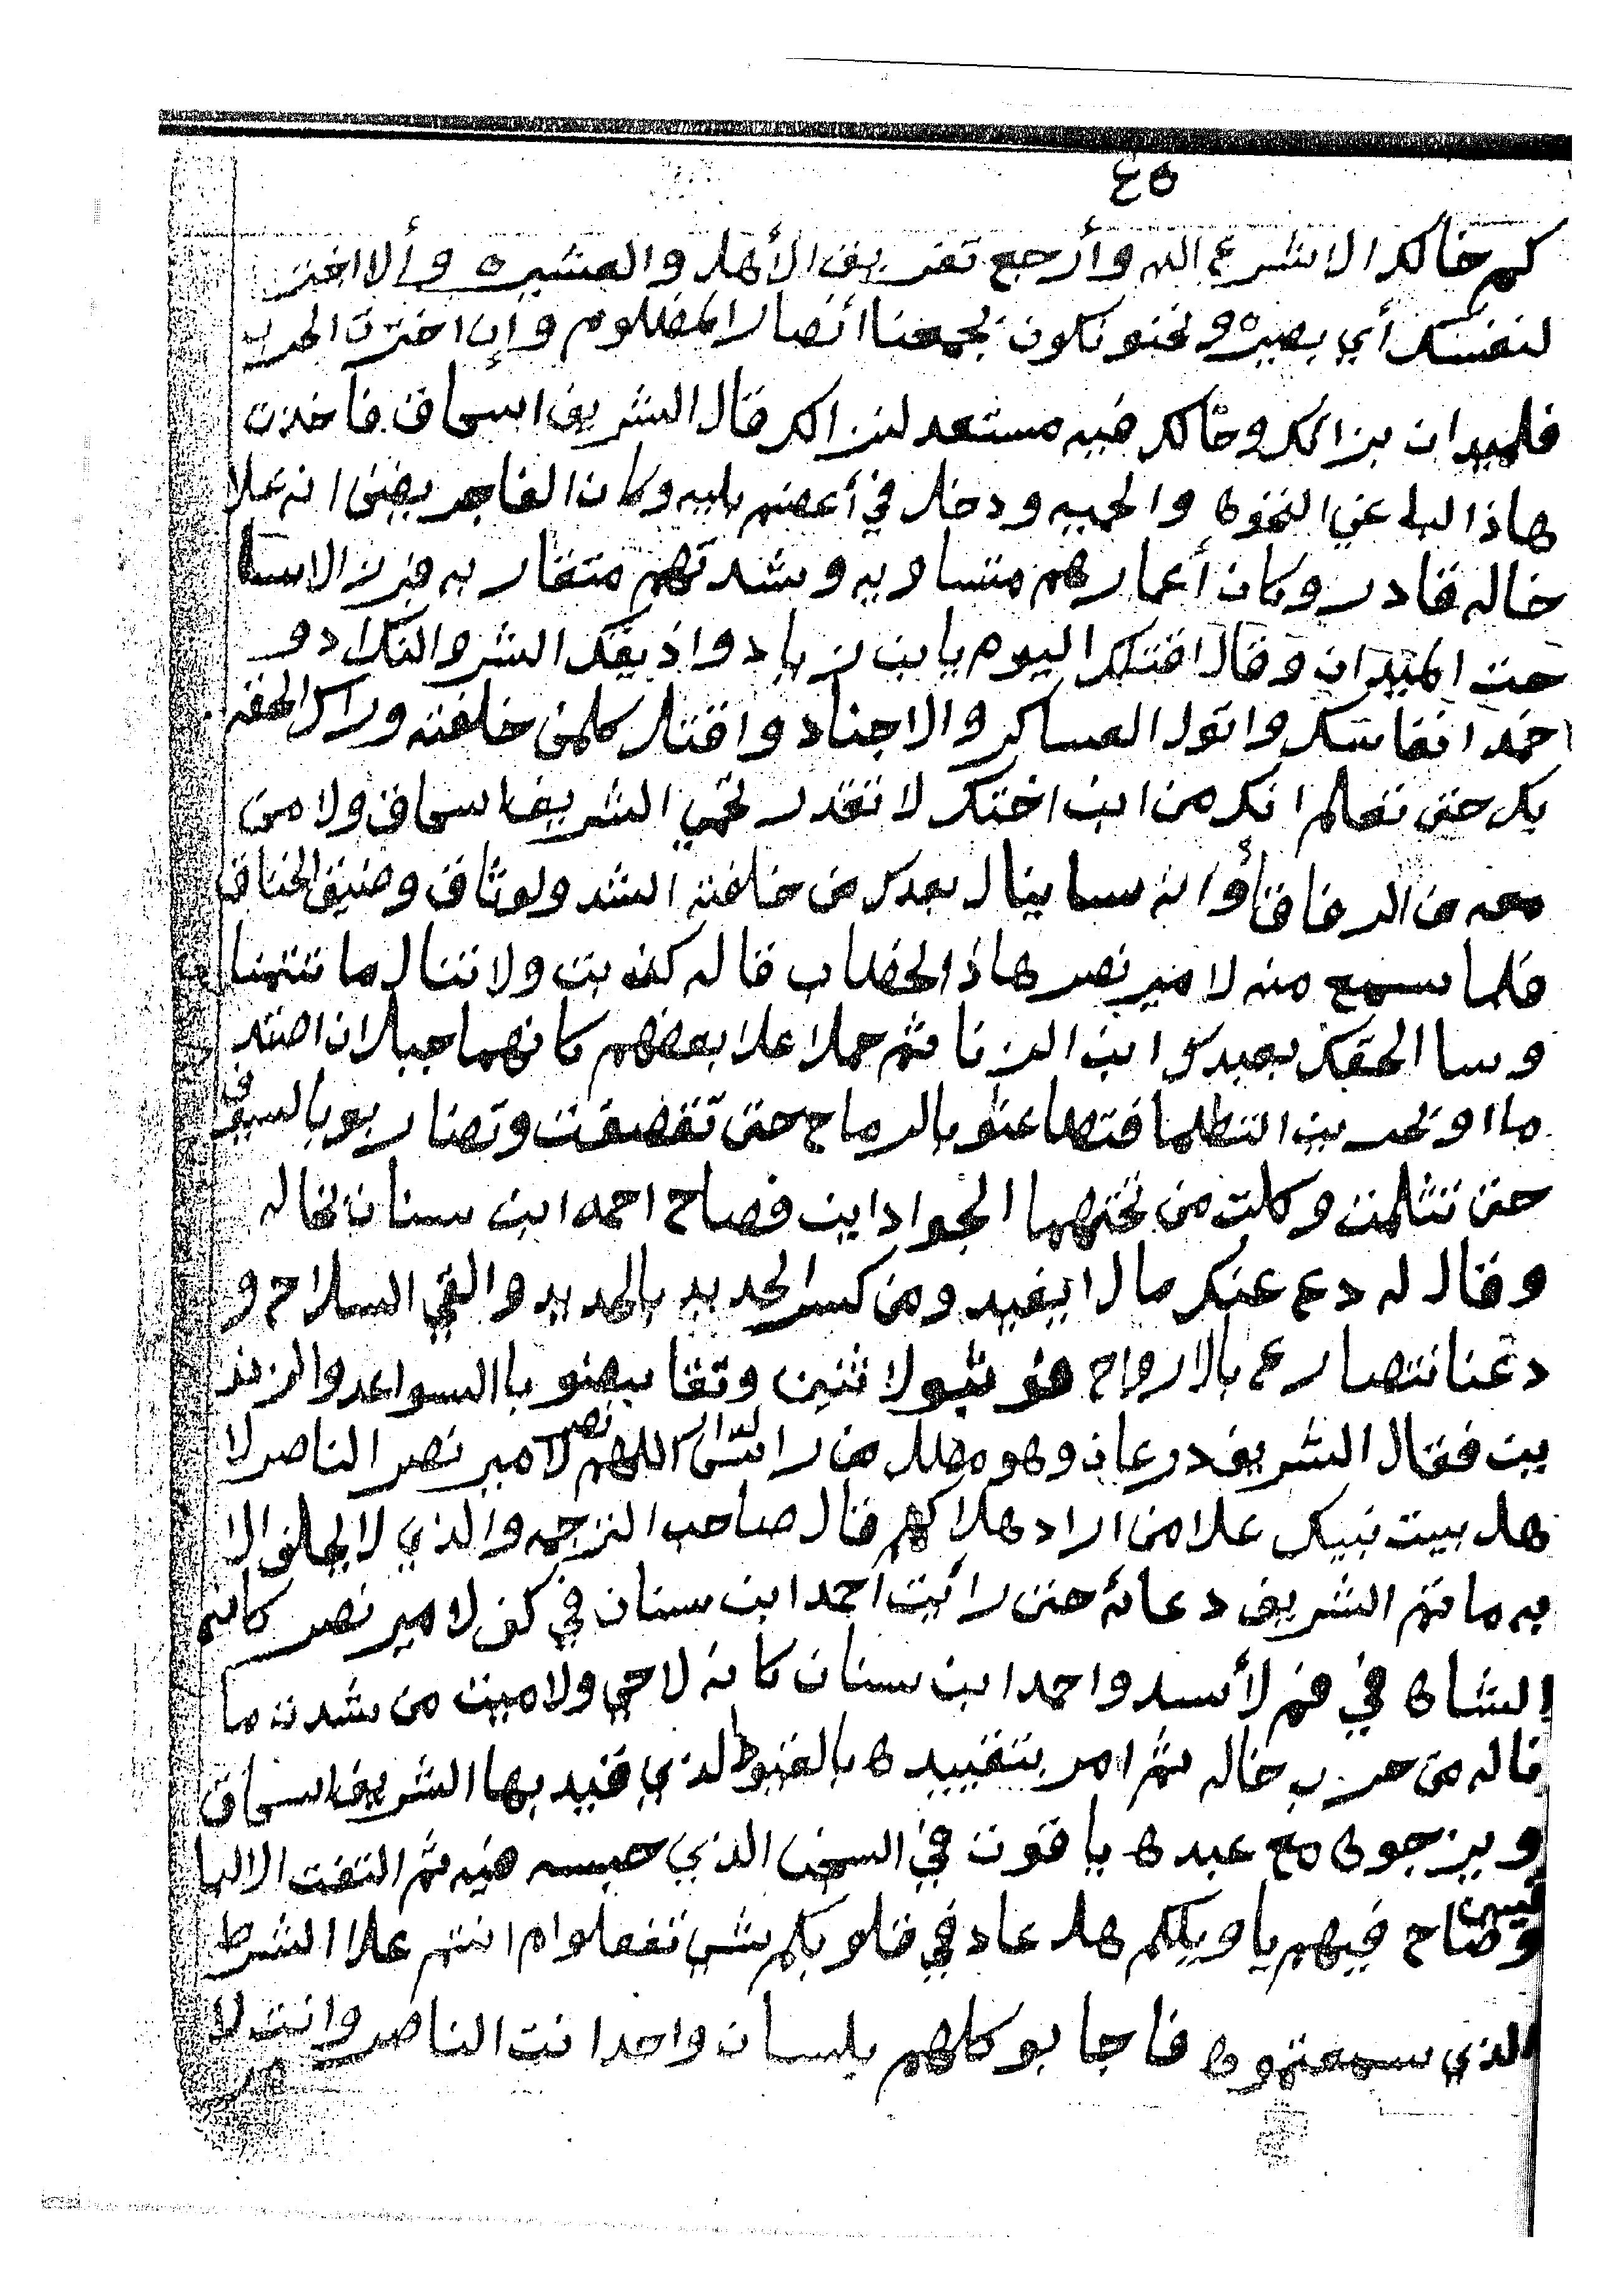 ٤٥
كم خالك الا شرع الله وأرجع تفريق الأهل والعشيره وألا اختر
لنفسك أي بصيره ونحنو نكون بجمعنا انصار المضلوم وإن اخترت الحرب
فلميدان بزالك وخالك فيه مستعد لنزالك قال الشريف اسحاق فأخذت
هاذا البله عني النخوه والحميه ودخل في أعضهم بليه وكان الفاجر يضنى انه علا
خاله قادر وكان أعمارهم متساويه وشدتهم متقاربه فنزلا لاسا
حت الميدان وقال اقتلك اليوم يابن زياد واذيقك الشر والنكاد و
اخمد انفاسك واتول العساكر والاجناد واقتل كلمن خلفته وراك الحقه
بك حتى تعلم انك من ابن اختك لا تقدر تحمي الشريف اسحاق ولا من
معه من الرفاقا وأنه سا ينال بعدك من خلفته الشد ولوثاق وضيق الخناق
فلما سمع منه لامير نصر هاذا لخطاب قاله كذبت ولا تنال ما تتمنا
وسا الحقك بعيدك وابن الزنا ثم حملا علا بعضهم كانهما جبلان اصتد
ما او بحرين التطلما فتطاعنو بالرماح حتى تقصفت وتضاربو بالسيوف
حتى تثلمت وكلت من تحتهما الجوادين فصاح احمد ابن سنان لخاله
وقال له دع عنك مال ايفيد ومن كسر الحديد بالحديد والقي السلاح و
دعنا نتصارع بالارواح فوثبو لاثنين وتقابضو باالسواعد والزند
ين فقال الشريف درعان وهو مطل من رأس اللهم نصر لامير نصر الناصر لا
هل بيت نبيك علا من اراد هلاكهم قال صاحب الترجمه والذي لا يحلف الا
به ماتم الشريف دعائه حتى رأيت احمد ابن سنان في كف لامير نصر كانه
الشاه في فم لأسد واحمد ابن سنان كانه لاحي ولاميت من شدت ما
ناله من حرب خاله ثم امر بتقييده بالقيود الذي قيد بها الشريف اسحاق
ويزجوه مع عبده ياقوت في السجن الذي حبسه فيه ثم التفت الا البا
قيين وصاح فيهم ياويلكم هل عاد في قلوبكم شي تفعلوام انتم علا الشرط
الذي سمعتموه فاجابو كلهم بلسان واحد انت الناصر وانت لا
مير